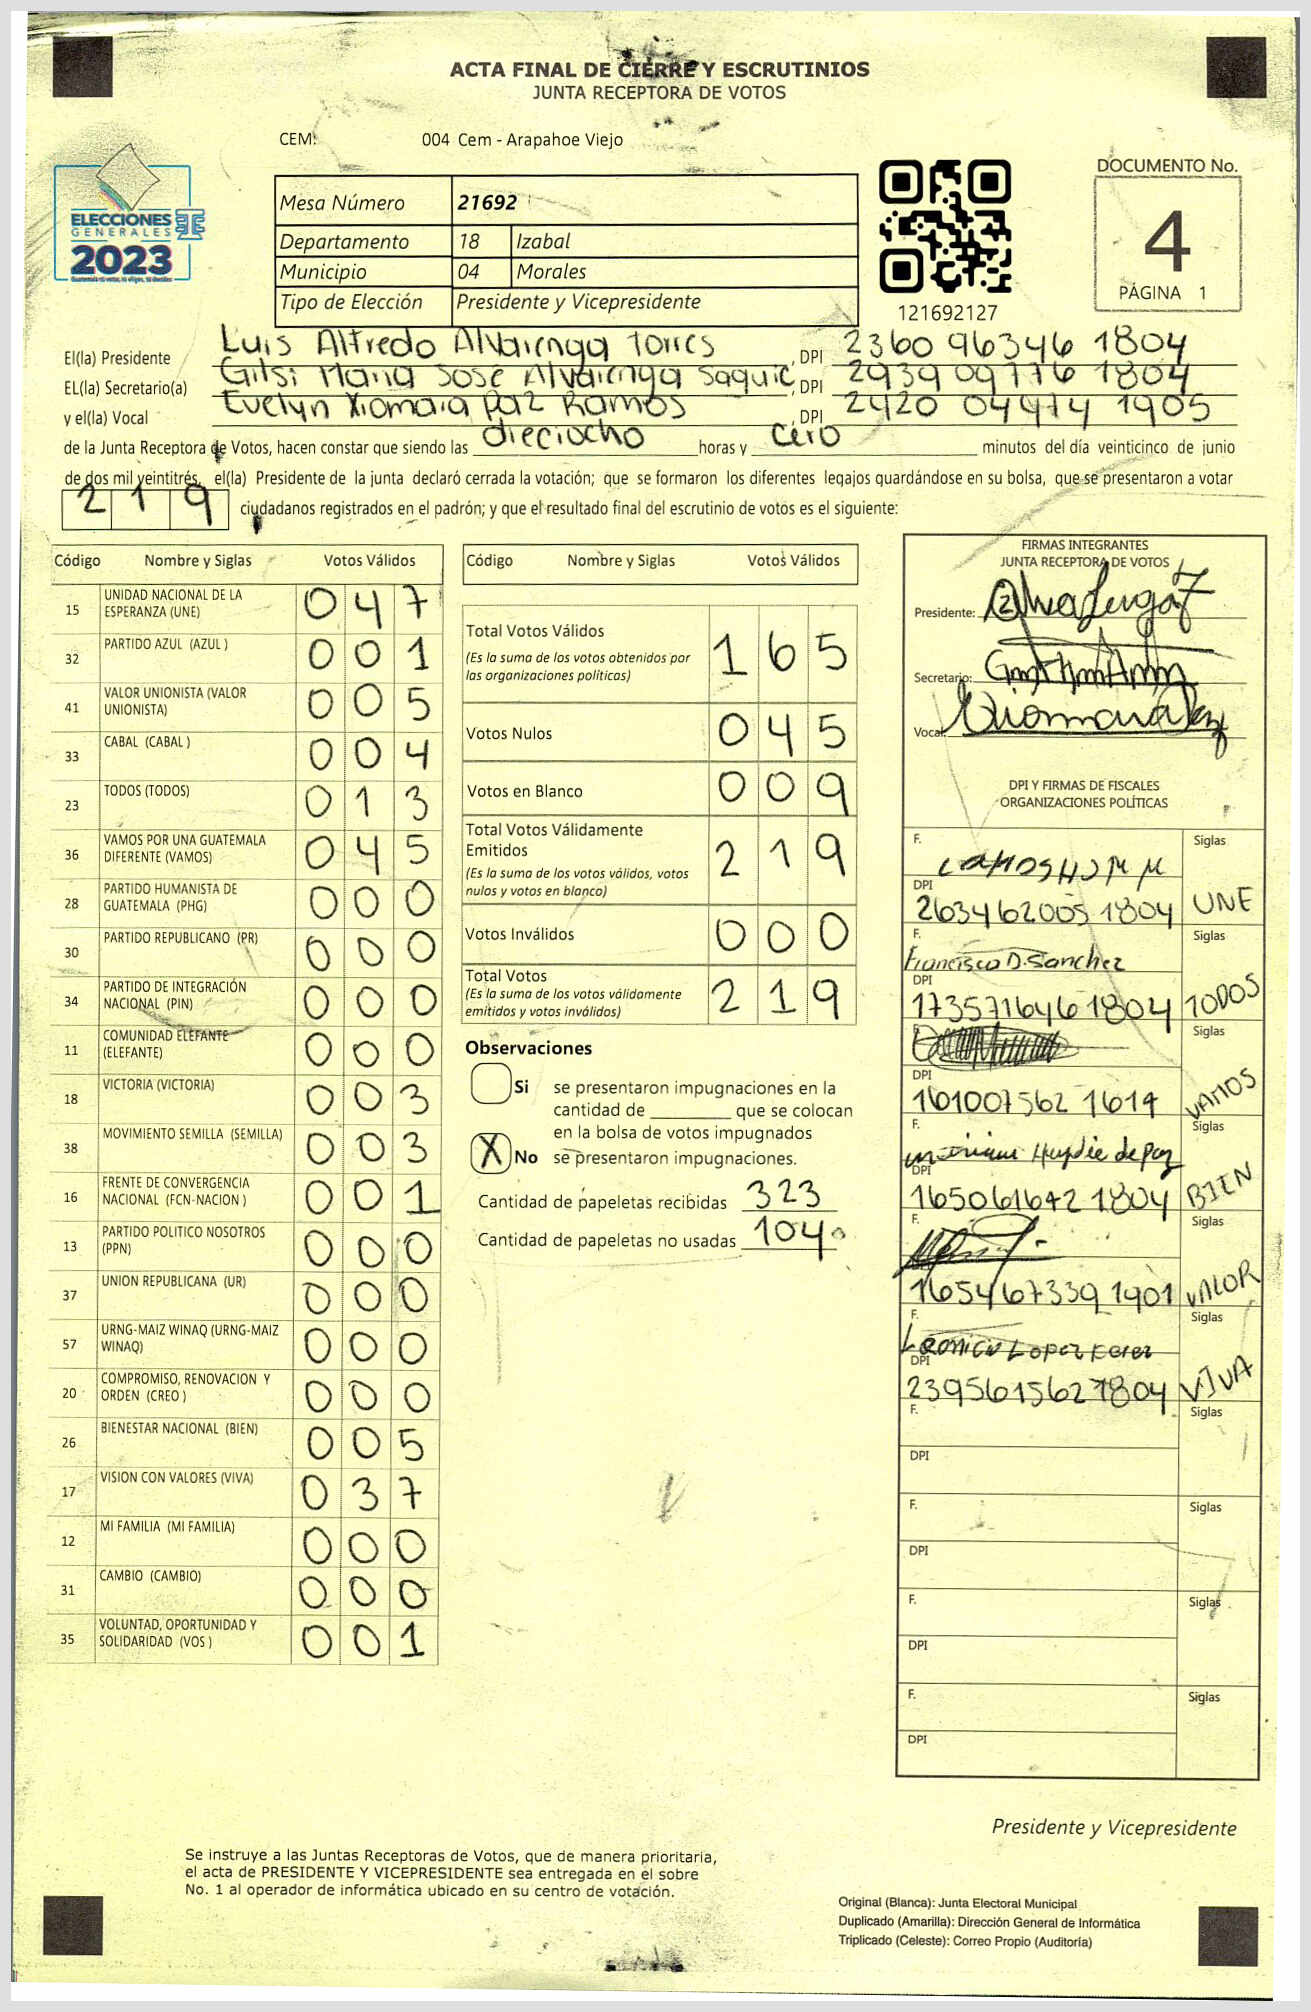 ACTA FINAL DE CIERRE Y ESCRUTINIOS
JUNTA RECEPTORA DE VOTOS
CEM: 004 Cem - Arapahoe Viejo
ELECCIONES
GENERALES
2023
Mesa Número 21692
Departamento 18 Izabal
Municipio 04 Morales
Tipo de Elección Presidente y Vicepresidente
121692127
DOCUMENTO No.
4
PÁGINA 1
El(la) Presidente Luis Alfredo Alvarenga Torres , DPI 2360 96346 1804
EL(la) Secretario(a) Gitsi Maria José Alvarenga Saquic , DPI 2939 09776 1804
y el(la) Vocal Evelyn Xiomara Paz Ramos , DPI 2420 04974 1905
de la Junta Receptora de Votos, hacen constar que siendo las dieciocho horas y cero minutos del día veinticinco de junio
de dos mil veintitrés, el(la) Presidente de la junta declaró cerrada la votación; que se formaron los diferentes legajos guardándose en su bolsa, que se presentaron a votar
219 ciudadanos registrados en el padrón; y que el resultado final del escrutinio de votos es el siguiente:
Código Nombre y Siglas Votos Válidos
15 UNIDAD NACIONAL DE LA ESPERANZA (UNE) 047
32 PARTIDO AZUL (AZUL ) 001
41 VALOR UNIONISTA (VALOR UNIONISTA) 005
33 CABAL (CABAL ) 004
23 TODOS (TODOS) 013
36 VAMOS POR UNA GUATEMALA DIFERENTE (VAMOS) 045
28 PARTIDO HUMANISTA DE GUATEMALA (PHG) 000
30 PARTIDO REPUBLICANO (PR) 000
34 PARTIDO DE INTEGRACIÓN NACIONAL (PIN) 000
11 COMUNIDAD ELEFANTE (ELEFANTE) 000
18 VICTORIA (VICTORIA) 003
38 MOVIMIENTO SEMILLA (SEMILLA) 003
16 FRENTE DE CONVERGENCIA NACIONAL (FCN-NACION ) 001
13 PARTIDO POLITICO NOSOTROS (PPN) 000
37 UNION REPUBLICANA (UR) 000
57 URNG-MAIZ WINAQ (URNG-MAIZ WINAQ) 000
20 COMPROMISO, RENOVACION Y ORDEN (CREO ) 000
26 BIENESTAR NACIONAL (BIEN) 005
17 VISION CON VALORES (VIVA) 037
12 MI FAMILIA (MI FAMILIA) 000
31 CAMBIO (CAMBIO) 000
35 VOLUNTAD, OPORTUNIDAD Y SOLIDARIDAD (VOS ) 001
Código Nombre y Siglas Votos Válidos
Total Votos Válidos 165
(Es la suma de los votos obtenidos por
las organizaciones políticas)
Votos Nulos 045
Votos en Blanco 009
Total Votos Válidamente
Emitidos 219
(Es la suma de los votos válidos, votos
nulos y votos en blanco)
Votos Inválidos 000
Total Votos 219
(Es la suma de los votos válidamente
emitidos y votos inválidos)
Observaciones
Si se presentaron impugnaciones en la
cantidad de ________ que se colocan
en la bolsa de votos impugnados
X No se presentaron impugnaciones.
Cantidad de papeletas recibidas 323
Cantidad de papeletas no usadas 104
FIRMAS INTEGRANTES
JUNTA RECEPTORA DE VOTOS
Presidente:
Secretario:
Vocal:
DPI Y FIRMAS DE FISCALES
ORGANIZACIONES POLÍTICAS
F. Siglas
DPI 263462005 1804 UNE
F. Francisco D. Sanchez Siglas
DPI 173571646 1804 TODOS
F. Siglas
DPI 161007562 1614 VAMOS
F. Haydée de Paz Siglas
DPI 165061642 1804 BIEN
F. Siglas
165467339 1901 VALOR
F. Lopez Siglas
DPI 239561562 1804 VIVA
F. Siglas
DPI
F. Siglas
DPI
F. Siglas
DPI
F. Siglas
DPI
Presidente y Vicepresidente
Se instruye a las Juntas Receptoras de Votos, que de manera prioritaria,
el acta de PRESIDENTE Y VICEPRESIDENTE sea entregada en el sobre
No. 1 al operador de informática ubicado en su centro de votación.
Original (Blanca): Junta Electoral Municipal
Duplicado (Amarilla): Dirección General de Informática
Triplicado (Celeste): Correo Propio (Auditoría)